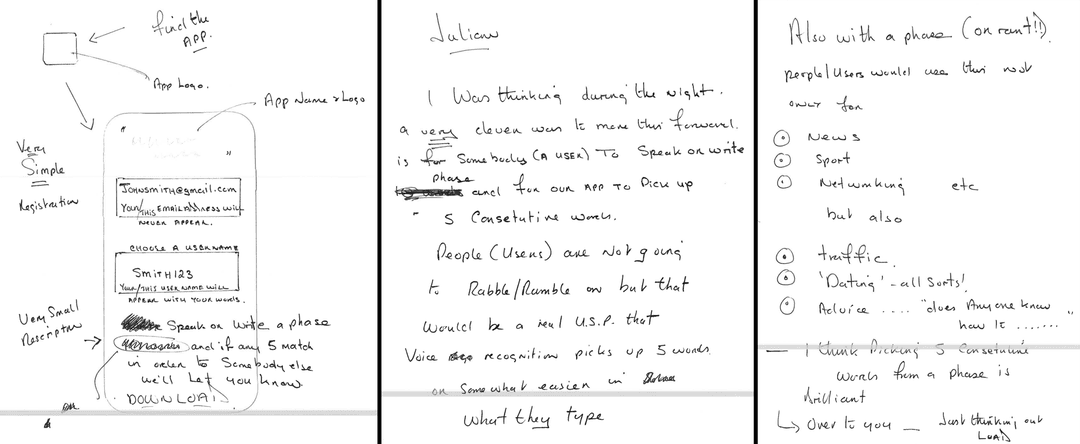 find the
APP.
App Logo.
App Name & Logo
"
"
Very
Simple
Registration
Johnsmith@gmail.com
Your/THIS EMAIL ADDRESS WILL
NEVER APPEAR.
CHOOSE A USERNAME
SMITH123
YOUR/THIS USER NAME WILL
APPEAR WITH YOUR WORDS.
Very Small
Description
Speak or write a phase
and if any 5 match
in order to Somebody else
we'll let you know
DOWNLOAD
Julian
I Was thinking during the night.
a very clever was to move this forward.
is for Somebody (A USER) To Speak or write
phase
and for our APP TO Pick up
5 Consetutive words.
People (Users) are Not going
to Rabble/Ramble on but that
would be a real U.S.P. that
Voice recognition picks up 5 words
or Somewhat easier in
what they type
Also with a phase (or rant!!)
people/users would use this not
only for
News
Sport
Networking etc
but also
traffic
'Dating' - all sorts!
Advice .... "does Anyone know
how to ......."
— I think Picking 5 Consetutive
words from a phase is
brilliant
Over to you — Just thinking out
LOAD